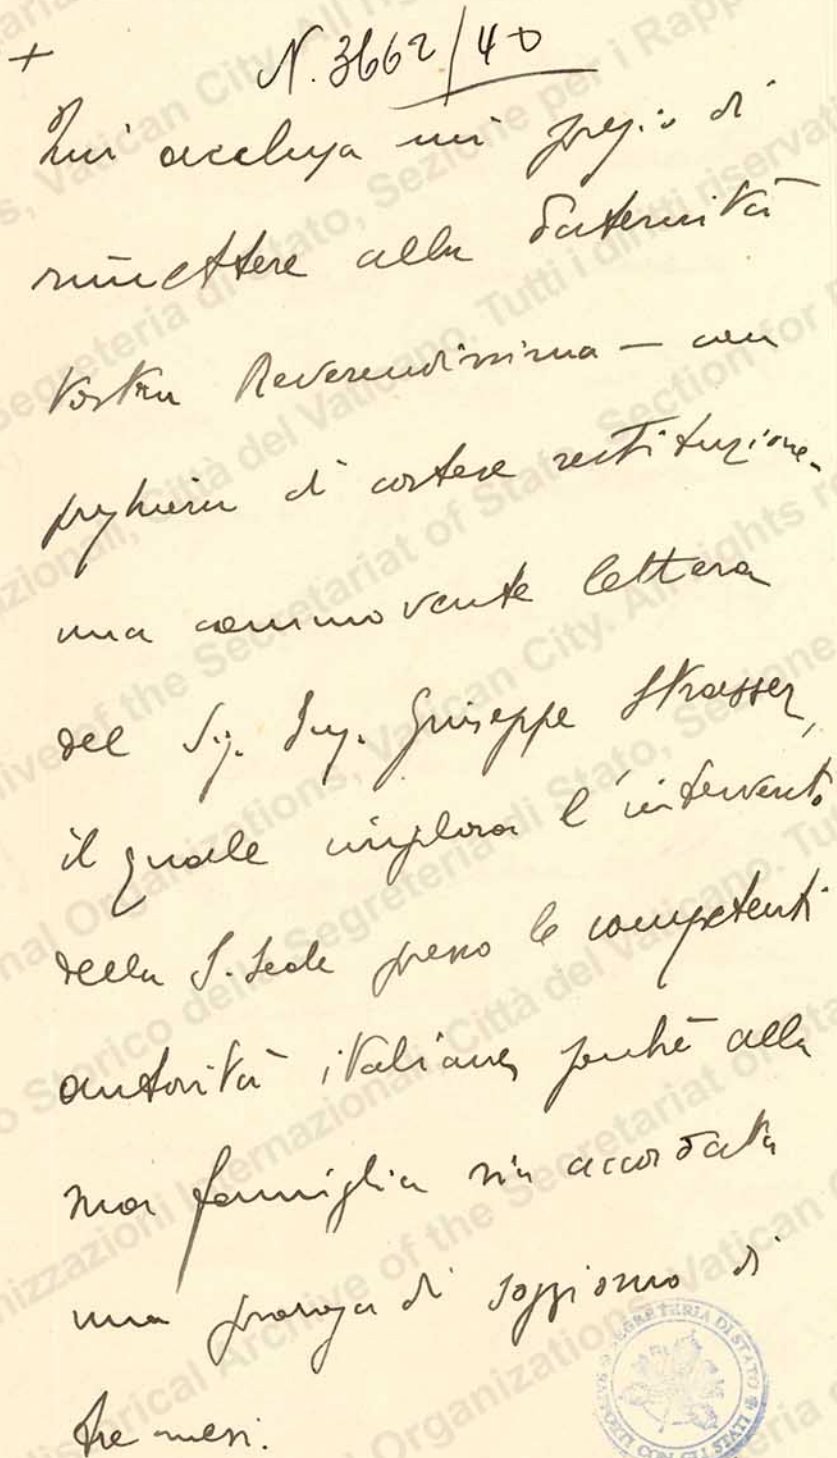 +
N. 3662/40
Qui acclusa mi pregio di
rimettere alla Paternità
Vostra Reverendissima – con
preghiera di cortese restituzione –
una commovente lettera
del Sig. Ing. Giuseppe Strasser,
il quale implora l'intervento
della S. Sede presso le competenti
autorità italiane, perché alla
sua famiglia sia accordata
una proroga di soggiorno di
tre mesi.
SEGRETERIA DI STATO